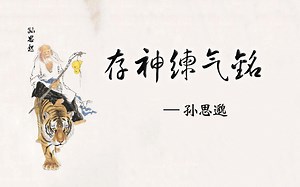 孙思邈
存神練气銘
— 孙思邈